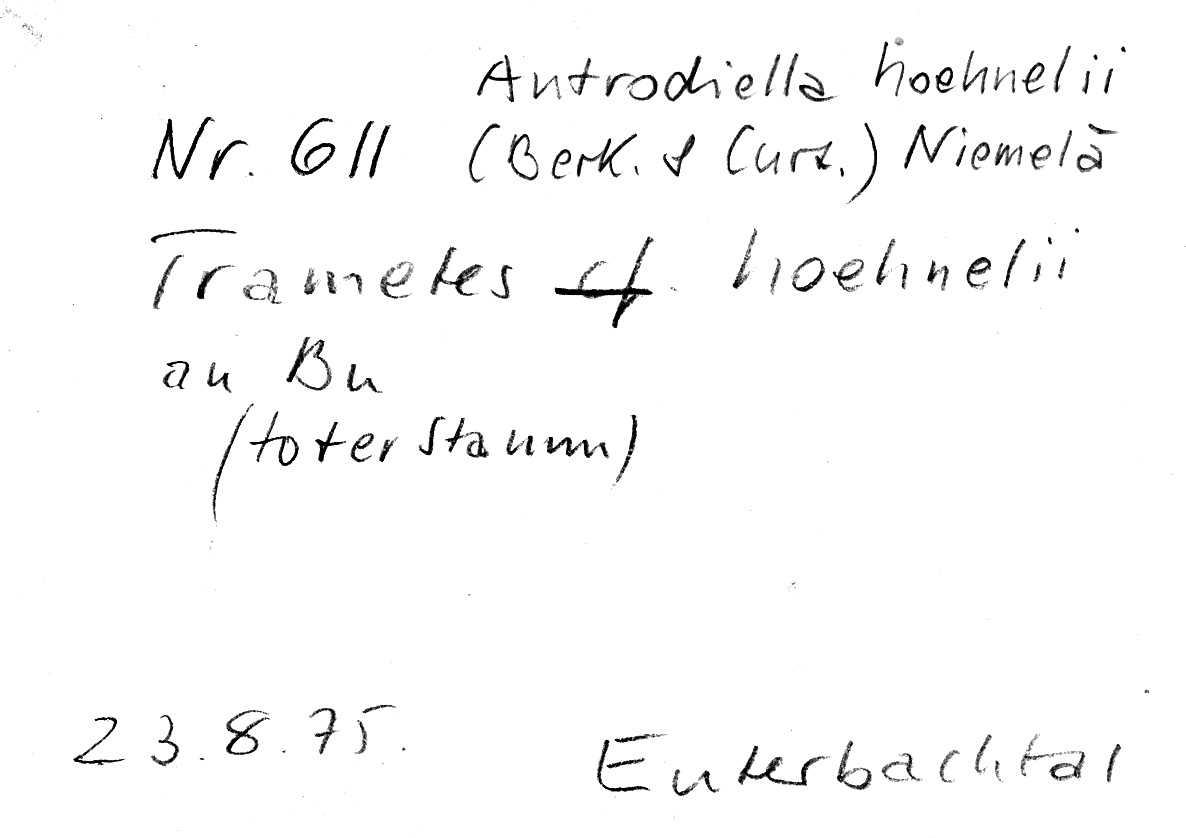 Antrodiella hoehnelii
Nr. 611 (Berk. & Curt.) Niemelä
Trametes cf. hoehnelii
an Bu
(toter Stamm)
23.8.75.
Enterbachtal